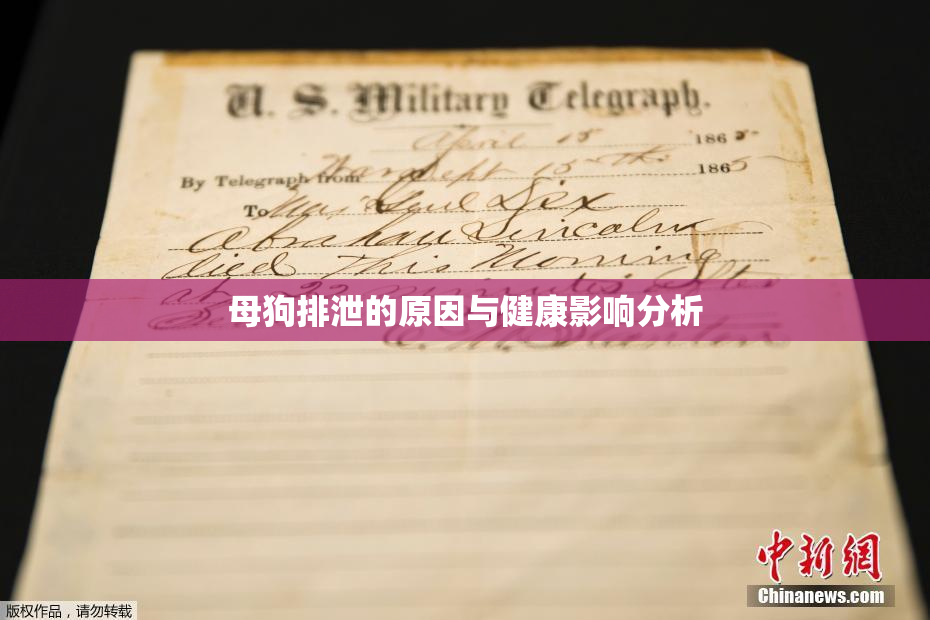 U. S. Military Telegraph.
April 15 1865
By Telegraph from War Dept 15th 1865
To Maj Genl Dix
Abraham Lincoln
died This Morning
at 22 minutes after
母狗排泄的原因与健康影响分析
中新网
Chinanews.com
版权作品，请勿转载